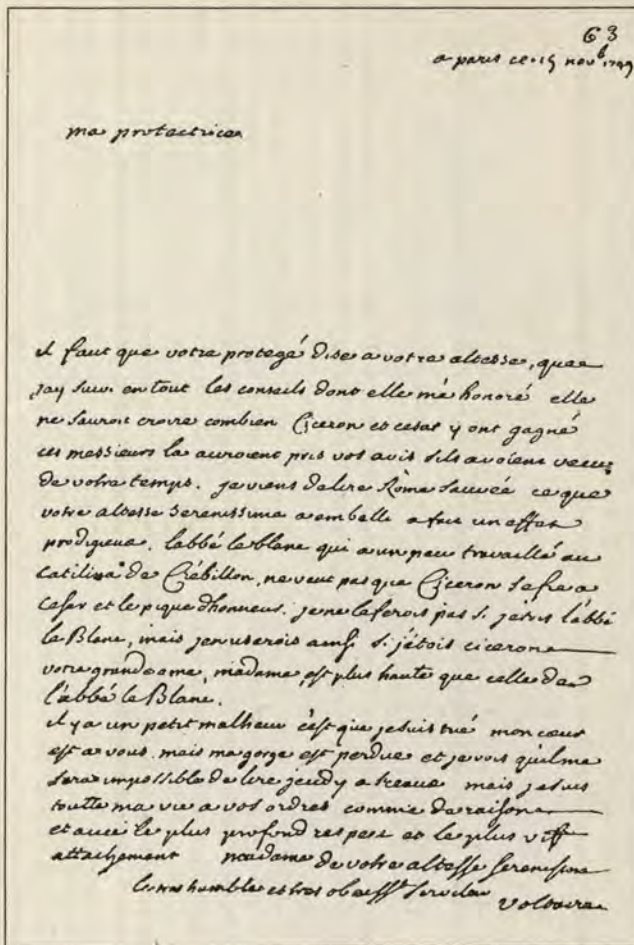 63
a paris ce 15 nov.b 1749
ma protectrice
il faut que votre protegé dise a votre altesse, que
jay suivi en tout les conseils dont elle m'a honoré elle
ne sauroit croire combien Ciceron et cesar y ont gagné
ces messieurs la auroient pris vos avis sils avoient vecu
de votre temps. je viens de lire Rome sauvée ce que
votre altesse serenissima a embelli a fait un effet
prodigieux. labbé le blanc qui a un peu travaillé au
catilina de Crébillon, ne veut pas que Ciceron se fie a
Cesar et le pique dhonneur. je ne le ferois pas si jetois l'abbé
le Blanc, mais jen userois ainsi si j'étois ciceron
votre grande ame, madame, est plus haute que celle de
l'abbé le Blanc.
il y a un petit malheur c'est que je suis tué mon coeur
est a vous mais ma gorge est perdue et je vois quil me
sera impossible de lire jeudy a sceaux mais je suis
toutte ma vie a vos ordres comme de raison
et avec le plus profond respect et le plus vif
attachement madame de votre altesse serenissime
le tres humble et tres obeisst serviteur
voltaire